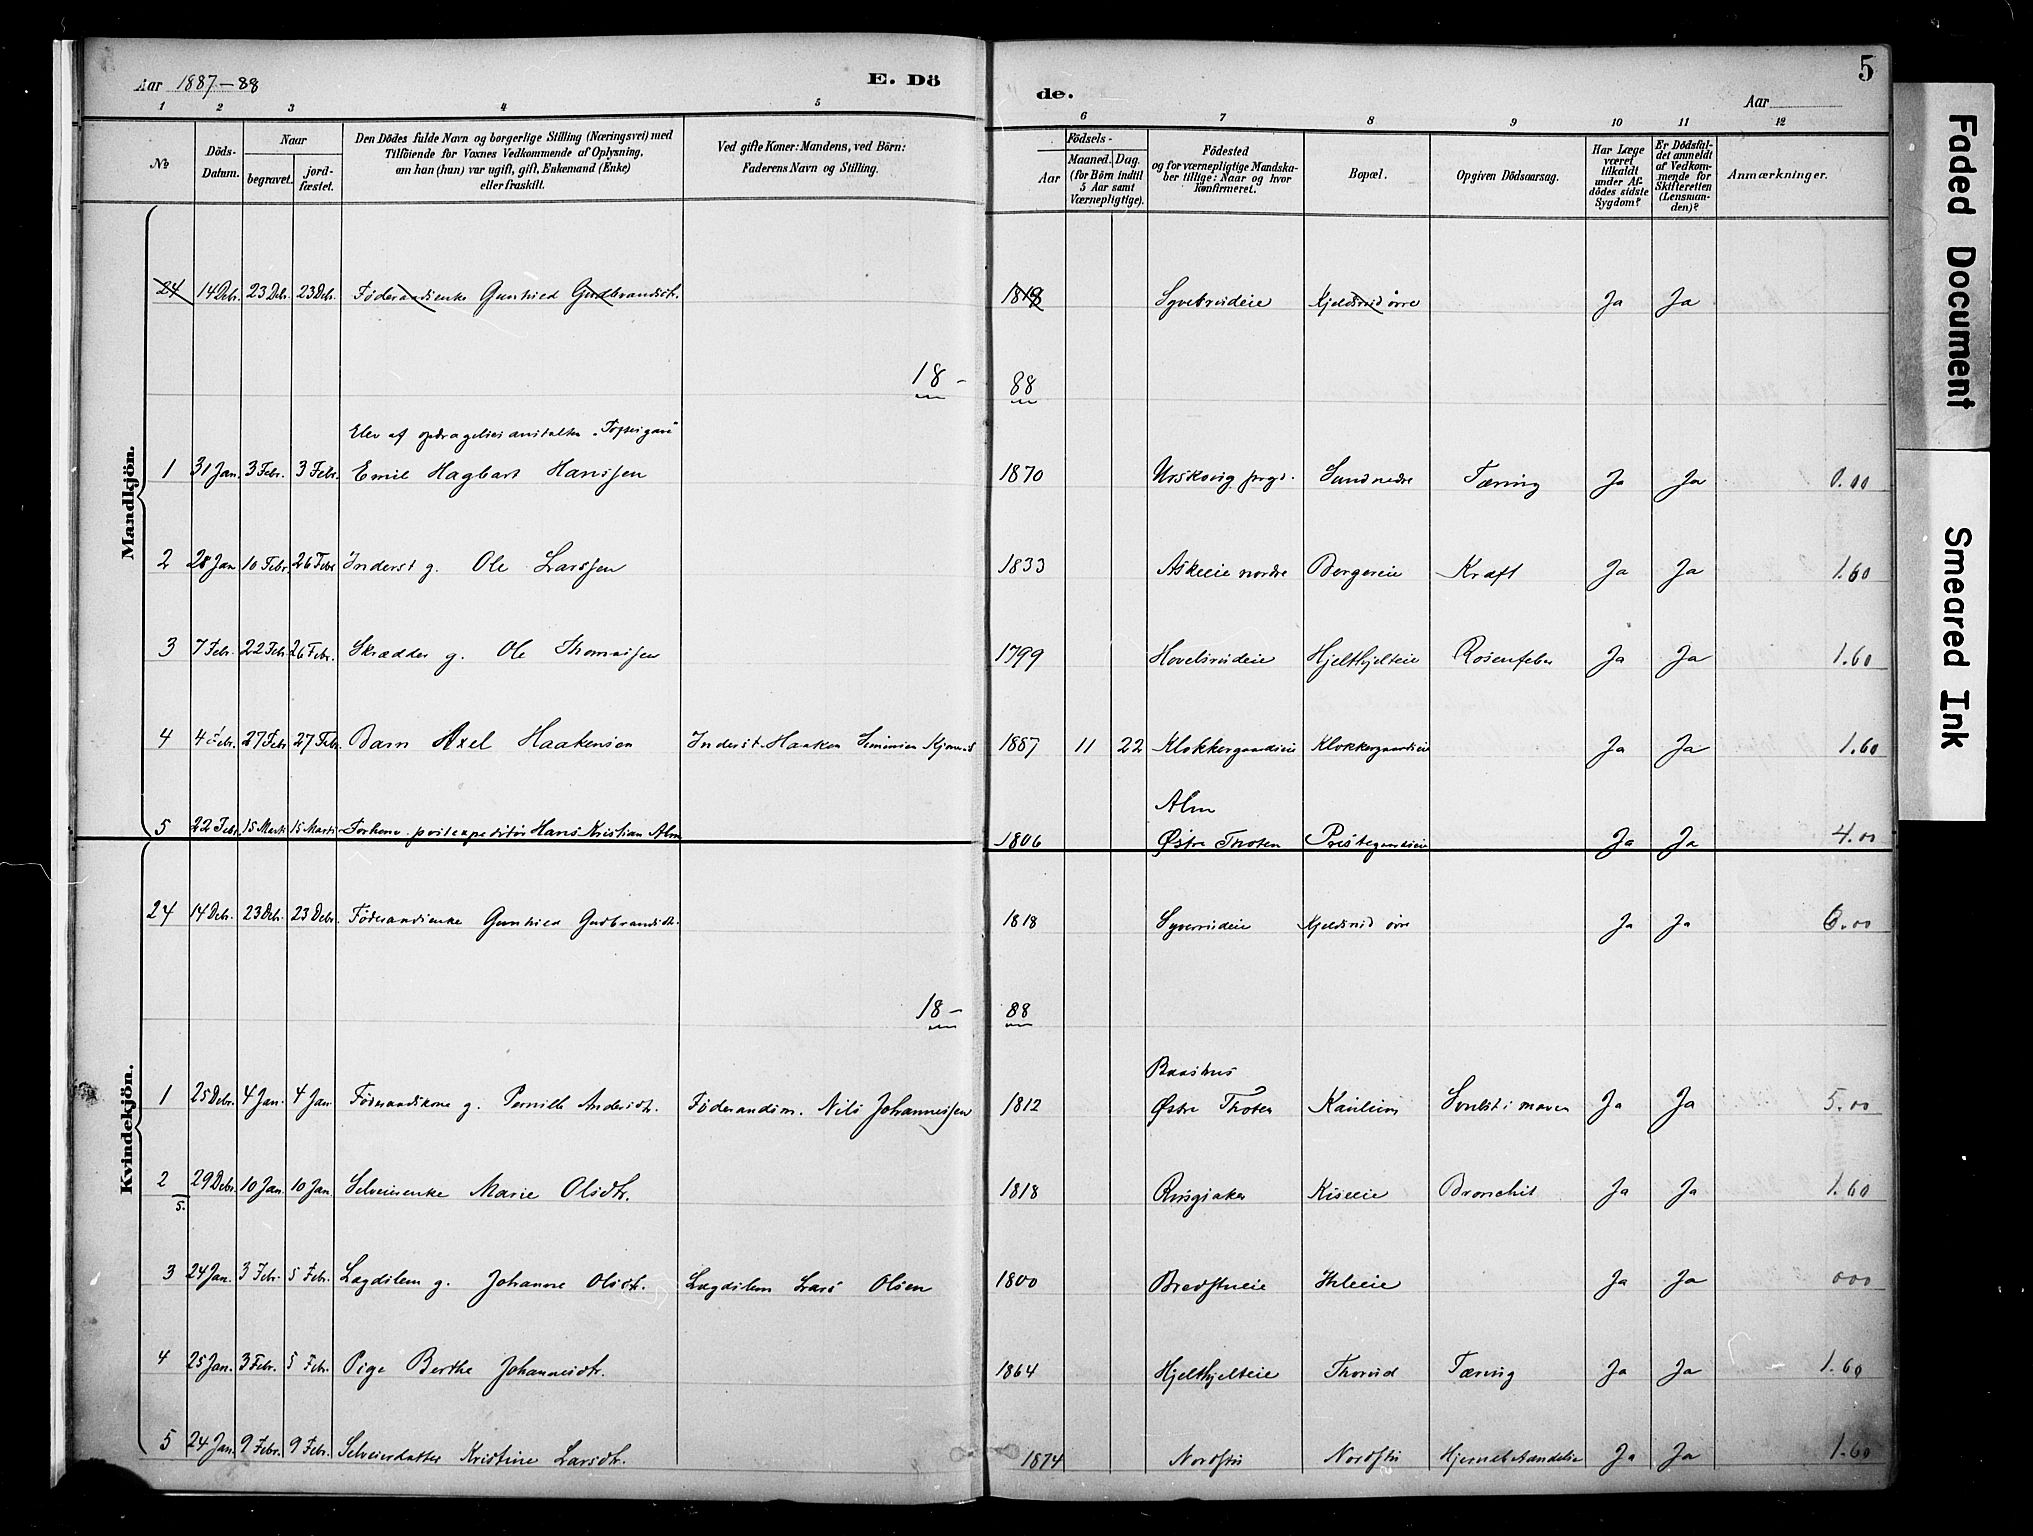 Aar 1887-88
E. Dö
de.
Aar
5
1 2 3 4 5 6 7 8 9 10 11 12
No
Döds-Datum.
Naar
begravet.
jord-fæstet.
Den Dödes fulde Navn og borgerlige Stilling (Næringsvei) med
Tilföiende for Voxnes Vedkommende af Oplysning,
om han (hun) var ugift, gift, Enkemand (Enke)
eller fraskilt.
Ved gifte Koner: Mandens, ved Börn:
Faderens Navn og Stilling.
Födsels-
Aar
Maaned. Dag.
(for Börn indtil
5 Aar samt
Værnepligtige).
Födested
og for værnepligtige Mandska-
ber tillige: Naar og hvor
Konfirmeret.
Bopæl.
Opgiven Dödsaarsag.
Har Læge
været
tilkaldt
under Af-
dödes sidste
Sygdom?
Er Dödsfal-
det anmeldt
af Vedkom-
mende for
Skifteretten
(Lensman-
den)?
Anmærkninger.
Mandkjön.
24 14 Debr. 23 Debr. 23 Debr. Föderaadsenke Gunhild Gudbrandsdtr. 1818 Kjeldsrud övre Ja Ja
18 - 88
Elev af opdragelsesanstalten "Toftes gave"
1 31 Jan. 3 Febr. 3 Febr. Emil Hagbart Hanssen 1870 Urskoug prgd. Sund nedre Tæring Ja Ja 0.00
2 28 Jan 10 Febr. 26 Febr Inderst g. Ole Larssen 1833 Askeeie nordre Bergereie Kræft Ja Ja 1.60
3 7 Febr. 22 Febr 26 Febr. Skrædder g. Ole Thomassen 1799 Hovelsrudeie Hjelthjelteie Rosenfeber Ja Ja 1.60
4 4 Febr. 27 Febr 27 Febr. Barn Axel Haakensen Inderst Haaken Simensen 1887 11 22 Klokkergaardseie Klokkergaardseie Ja Ja 1.60
Alm
5 22 Febr. 15 Marts 15 Marts Forhenv. postexpeditör Hans Kristian Alm 1806 Østre Thoten Præstegaardseie Ja Ja 4.00
Kvindekjön.
24 14 Debr. 23 Debr. 23 Debr. Föderaadsenke Gunhild Gudbrandsdtr. 1818 Syverrudeie Kjeldsrud övre Ja Ja 6.00
18 - 88
Baashus
1 25 Debr. 4 Jan. 4 Jan. Föderaadskone g. Pernille Andersdtr. Föderaadsm. Nils Johannessen 1812 Østre Thoten Kaulum Svulst i maven Ja Ja 5.00
2/5. 29 Debr. 10 Jan. 10 Jan. Selveierenke Marie Olsdtr. 1818 Ringsaker Kiseeie Bronchit Ja Ja 1.60
3 24 Jan. 3 Febr. 5 Febr. Lægdslem g. Johanne Olsdtr. Lægdslem Lars Olsen 1800 Bredstueie Ihleeie Ja Ja 000
4 25 Jan. 3 Febr. 5 Febr. Pige Berthe Johannesdtr. 1864 Hjelthjelteie Thorud Tæring Ja Ja 1.60
5 24 Jan. 9 Febr. 9 Febr. Selveierdatter Kristine Larsdtr. 1874 Nordstu Nordstu Hjernebetændelse Ja Ja 1.60
Faded Document
Smeared Ink